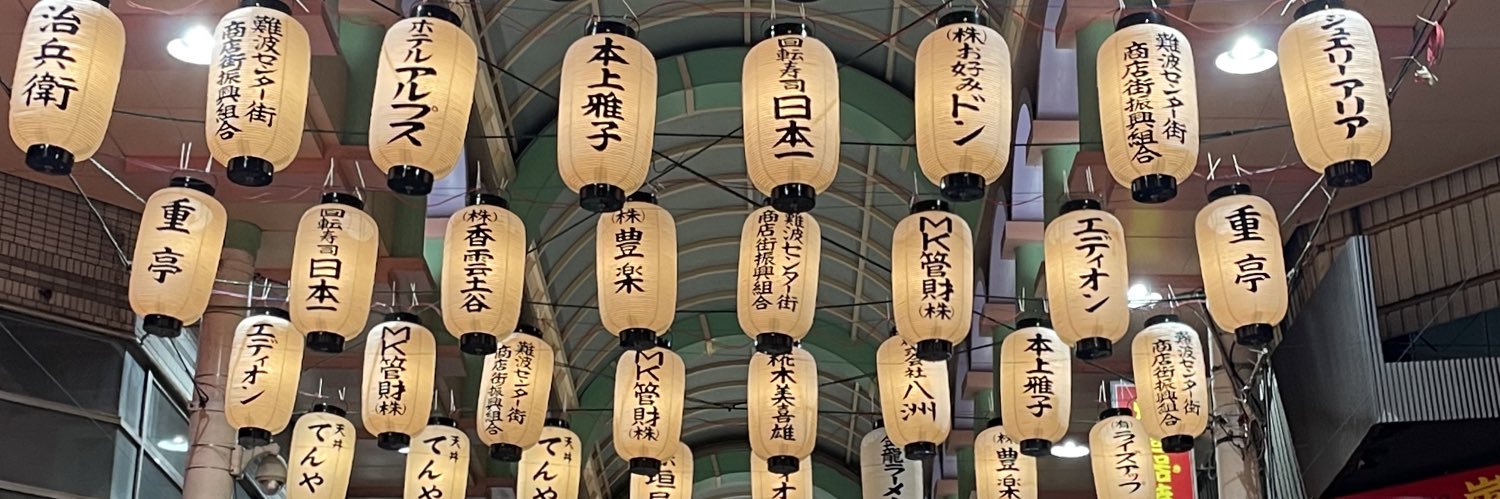 治兵衛
難波センター街
商店街振興組合
ホテルアルプス
本上雅子
回転寿司
日本一
(株)お好み
ドン
難波センター街
商店街振興組合
ジュエリーアリア
重亭
回転寿司
日本一
(株)香雲土谷
(株)豊楽
難波センター街
商店街振興組合
MK管財(株)
エディオン
重亭
エディオン
MK管財(株)
難波センター街
商店街振興組合
MK管財(株)
木美喜雄
会社八洲
本上雅子
難波センター街
商店街振興組合
天丼
てんや
天丼
てんや
天丼
てんや
垣
ィオ
金龍ラーメ
(株)豊楽
(有)ライズアップ